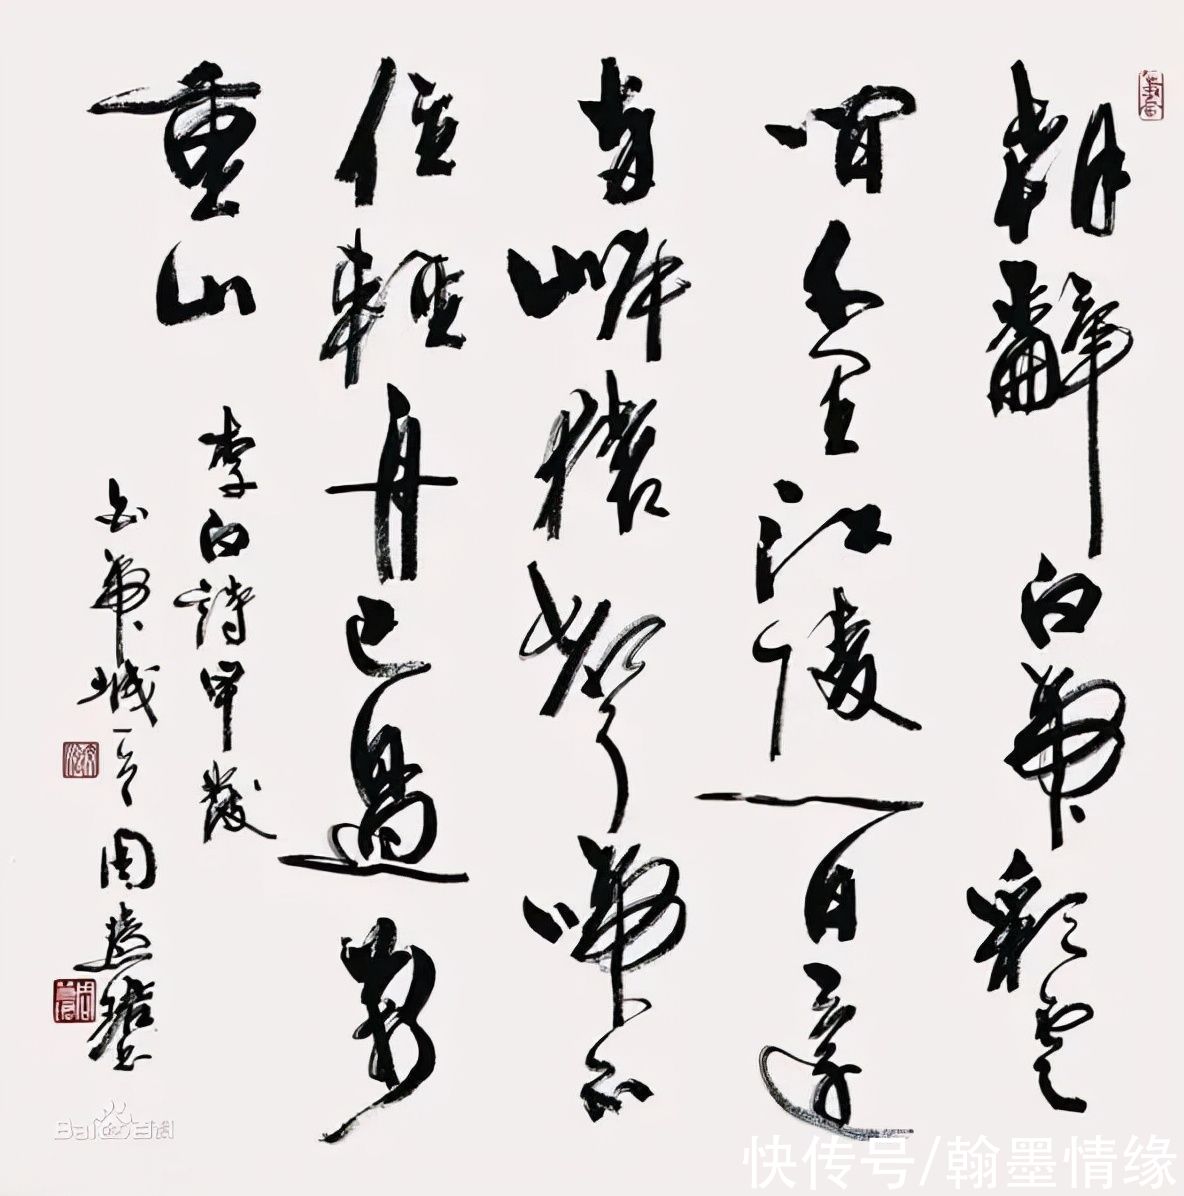 朝辭白帝彩雲
間千里江陵一日還
兩岸猿聲啼不
住輕舟已過萬
重山
李白詩早發
白帝城一首 周慧珺書
Bai百科
快传号/翰墨情缘